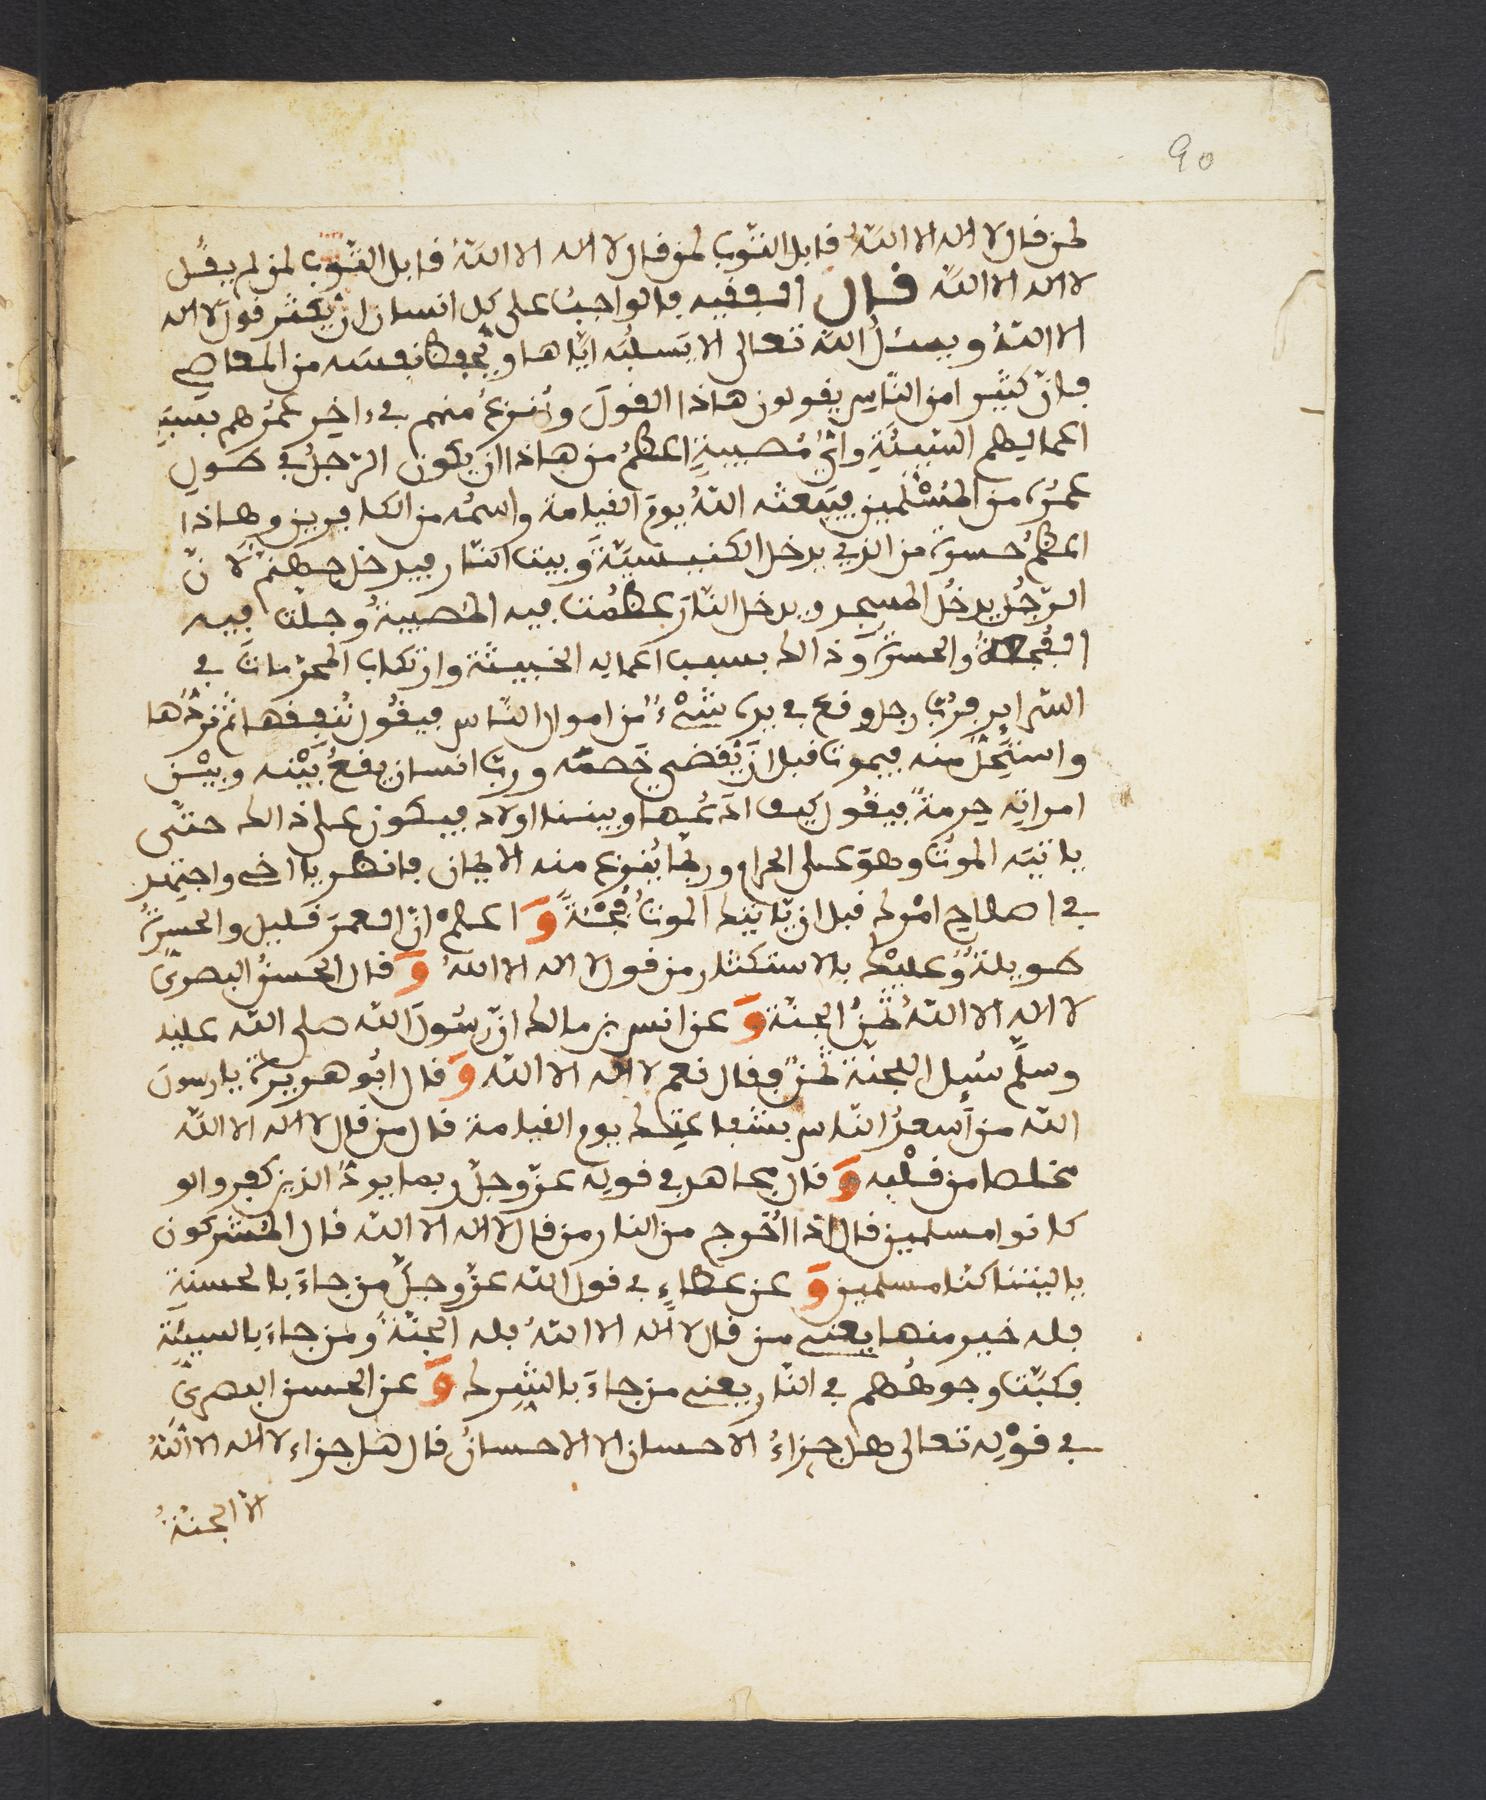 90
لمن قال لا اله الا اللهُ قابل التوب لمن قال لا اله الا اللهُ قابل التوب لمن لم يقُل
لا اله الا الله قال الفقيه فالواجبُ على كل انسان ان يُكثر قولَ لا اله
الا اللهُ ويسئلُ الله تعالى الا يَسلبُه ايّاها ويَحفظ نفسَه من المعاصي
فانّ كثيرا من النّاس يقولون هاذا القولَ ونُزعُ منهم في ءاخِر عمُرهم بسببِ
اعمالِهم السّيئَةِ وايُّ مُصيبةٍ اعظمُ من هاذا ان يكون الرّجلُ في طول
عمُره من المُسْلمين فيَبعثه اللهُ يومَ القيامة واسمُه من الكافرين وهاذا
اعظمُ حسرةً من الذي يدخل الكنيسيَّةَ وبيت النّار فيدخل جهنّمَ لانّ
الرّجُل يدخُل المسجد ويدخل النّارَ عظمُت فيه المصيبةُ وجلّت فيه
والحسرةُ وذالك بسبب اعماله الخبيثة وارتكاب المحرّماتِ في
السّرايرِ فرُبّ رجلٍ وقع في يده شَيْءٌ من اموال النّاس فيقُول نُنفِقها ثم نردّها
واستَحِلّ منه فيموت قبل انْ يُقضي خَصمَه وربّ انسان يقعُ بَيْنه وبيْن
امراتِه حِرمةً فيقُول كيف ادَعُها وبيننا اولاد فيكون على ذالك حتّى
ياتيَه الموتُ وهوَ على الحرام وربما يُنزع منه الايمان فانظر يا اخي واجتهد
في اصلاح امْرك قبل ان يّاتيَك الموتُ فَجْئَةً وَ اعلمْ انّ العمرَ قليل والحسرةُ
طويلةٌ وعَليْك بالاستكثار من قول لا اله الا اللهُ وَ قال الحَسنُ البصريُّ
لا اله الا اللهُ ثمنُ الجنّة وَ عن انس بن مالك انّ رسُولَ الله صلى الله عليه
وسلّم سُيل اللجنّة ثمنٌ فقال نعم لا اله الا الله وَ قال ابُو هريرة يا رسول
الله من أسعدُ النّاس بشفاعتِك يوم القيامة قال من قال لا اله الا الله
مخلصا من قلْبه وَ قال مجاهد في قوله عزّ وجلّ ربما يودّ الذين كفروا لو
كانوا مسلمين قال اذا اخُرج من النار من قال لا اله الا الله قال المُشركون
يا ليتنا كنّا مسلمين وَ عن عطاءٍ في قول الله عزّ وجلّ من جاءَ بالحسنة
فله خير منها يعني من قال لا اله الا اللهُ فله الجنّةُ ومن جاءَ بالسيئَةِ
فكبّت وجوهُهم في النّار يعني من جاءَ بالشِرك وَ عن الحسن البصريّ
في قوْلِه تعالى هل جزاءُ الاحسان الا الاحسانُ قال هل جزاء لا اله الا اللهُ
الا الجنّةُ